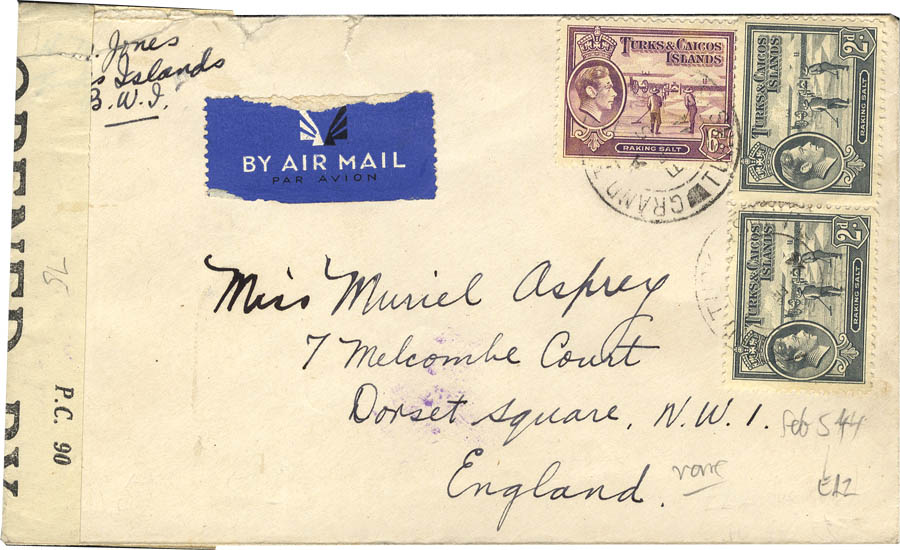 Jones
Islands
B.W.I.
BY AIR MAIL
PAR AVION
TURKS & CAICOS
ISLANDS
RAKING SALT
6d.
TURKS & CAICOS
ISLANDS
2d.
RAKING SALT
TURKS & CAICOS
ISLANDS
2d.
RAKING SALT
GRAND T
Miss Muriel Asprey
7 Melcombe Court
Dorset Square, N.W.1.
England.
Feb 5 44
OPENED BY
P.C. 90